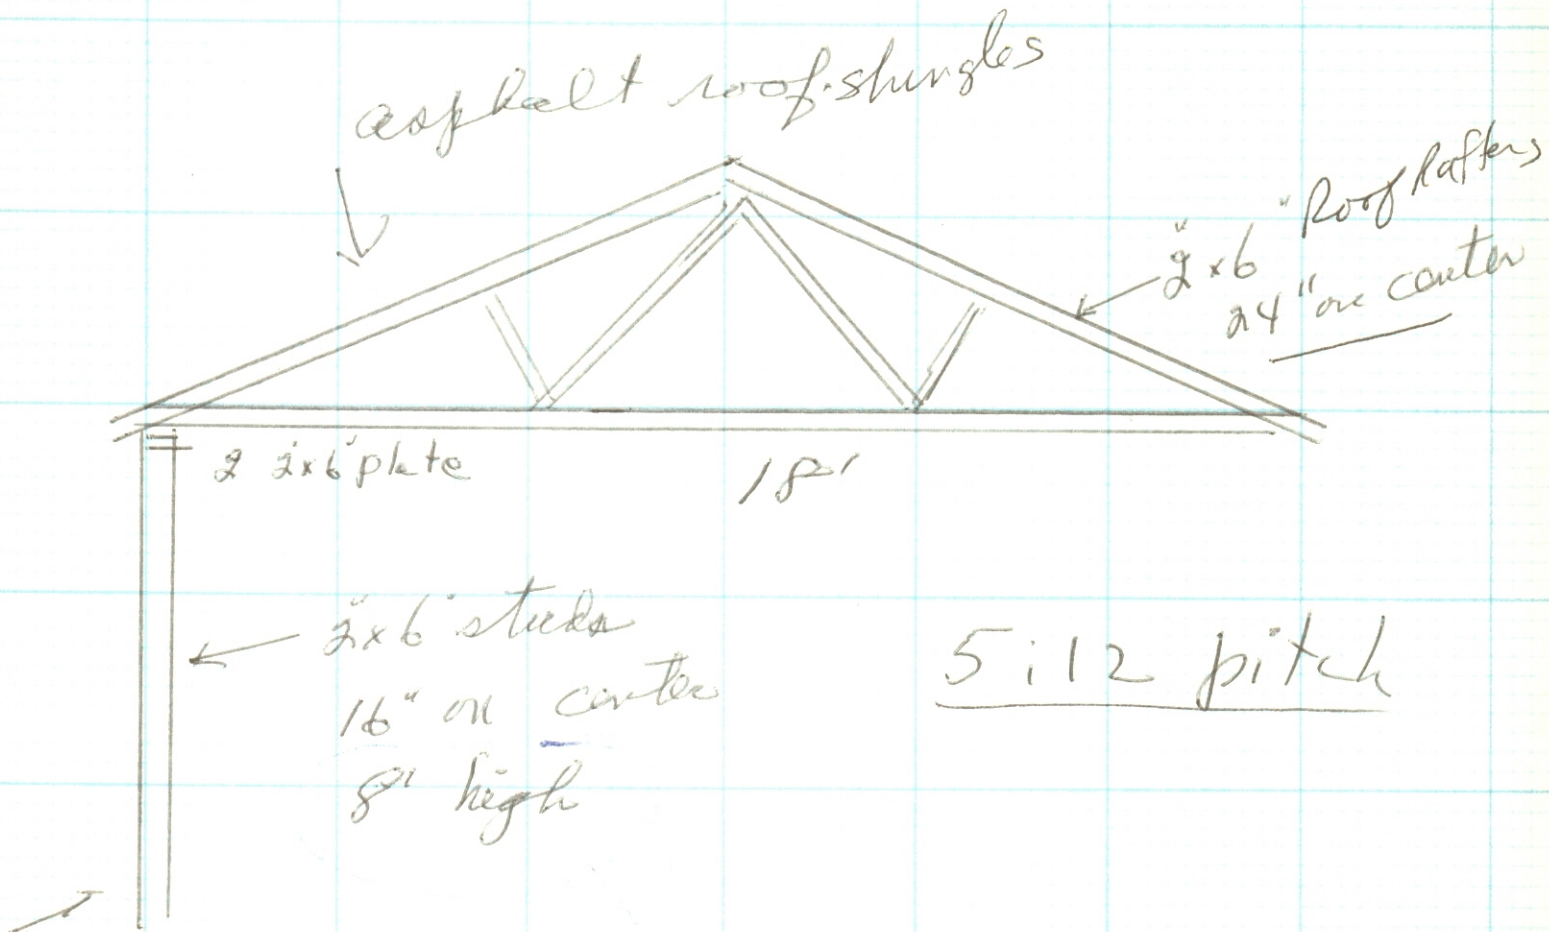 asphalt roof shingles
2"x6" Roof Rafters
24" on center
2 2"x6" plate
18'
2"x6" studs
16" on center
8' high
5:12 pitch